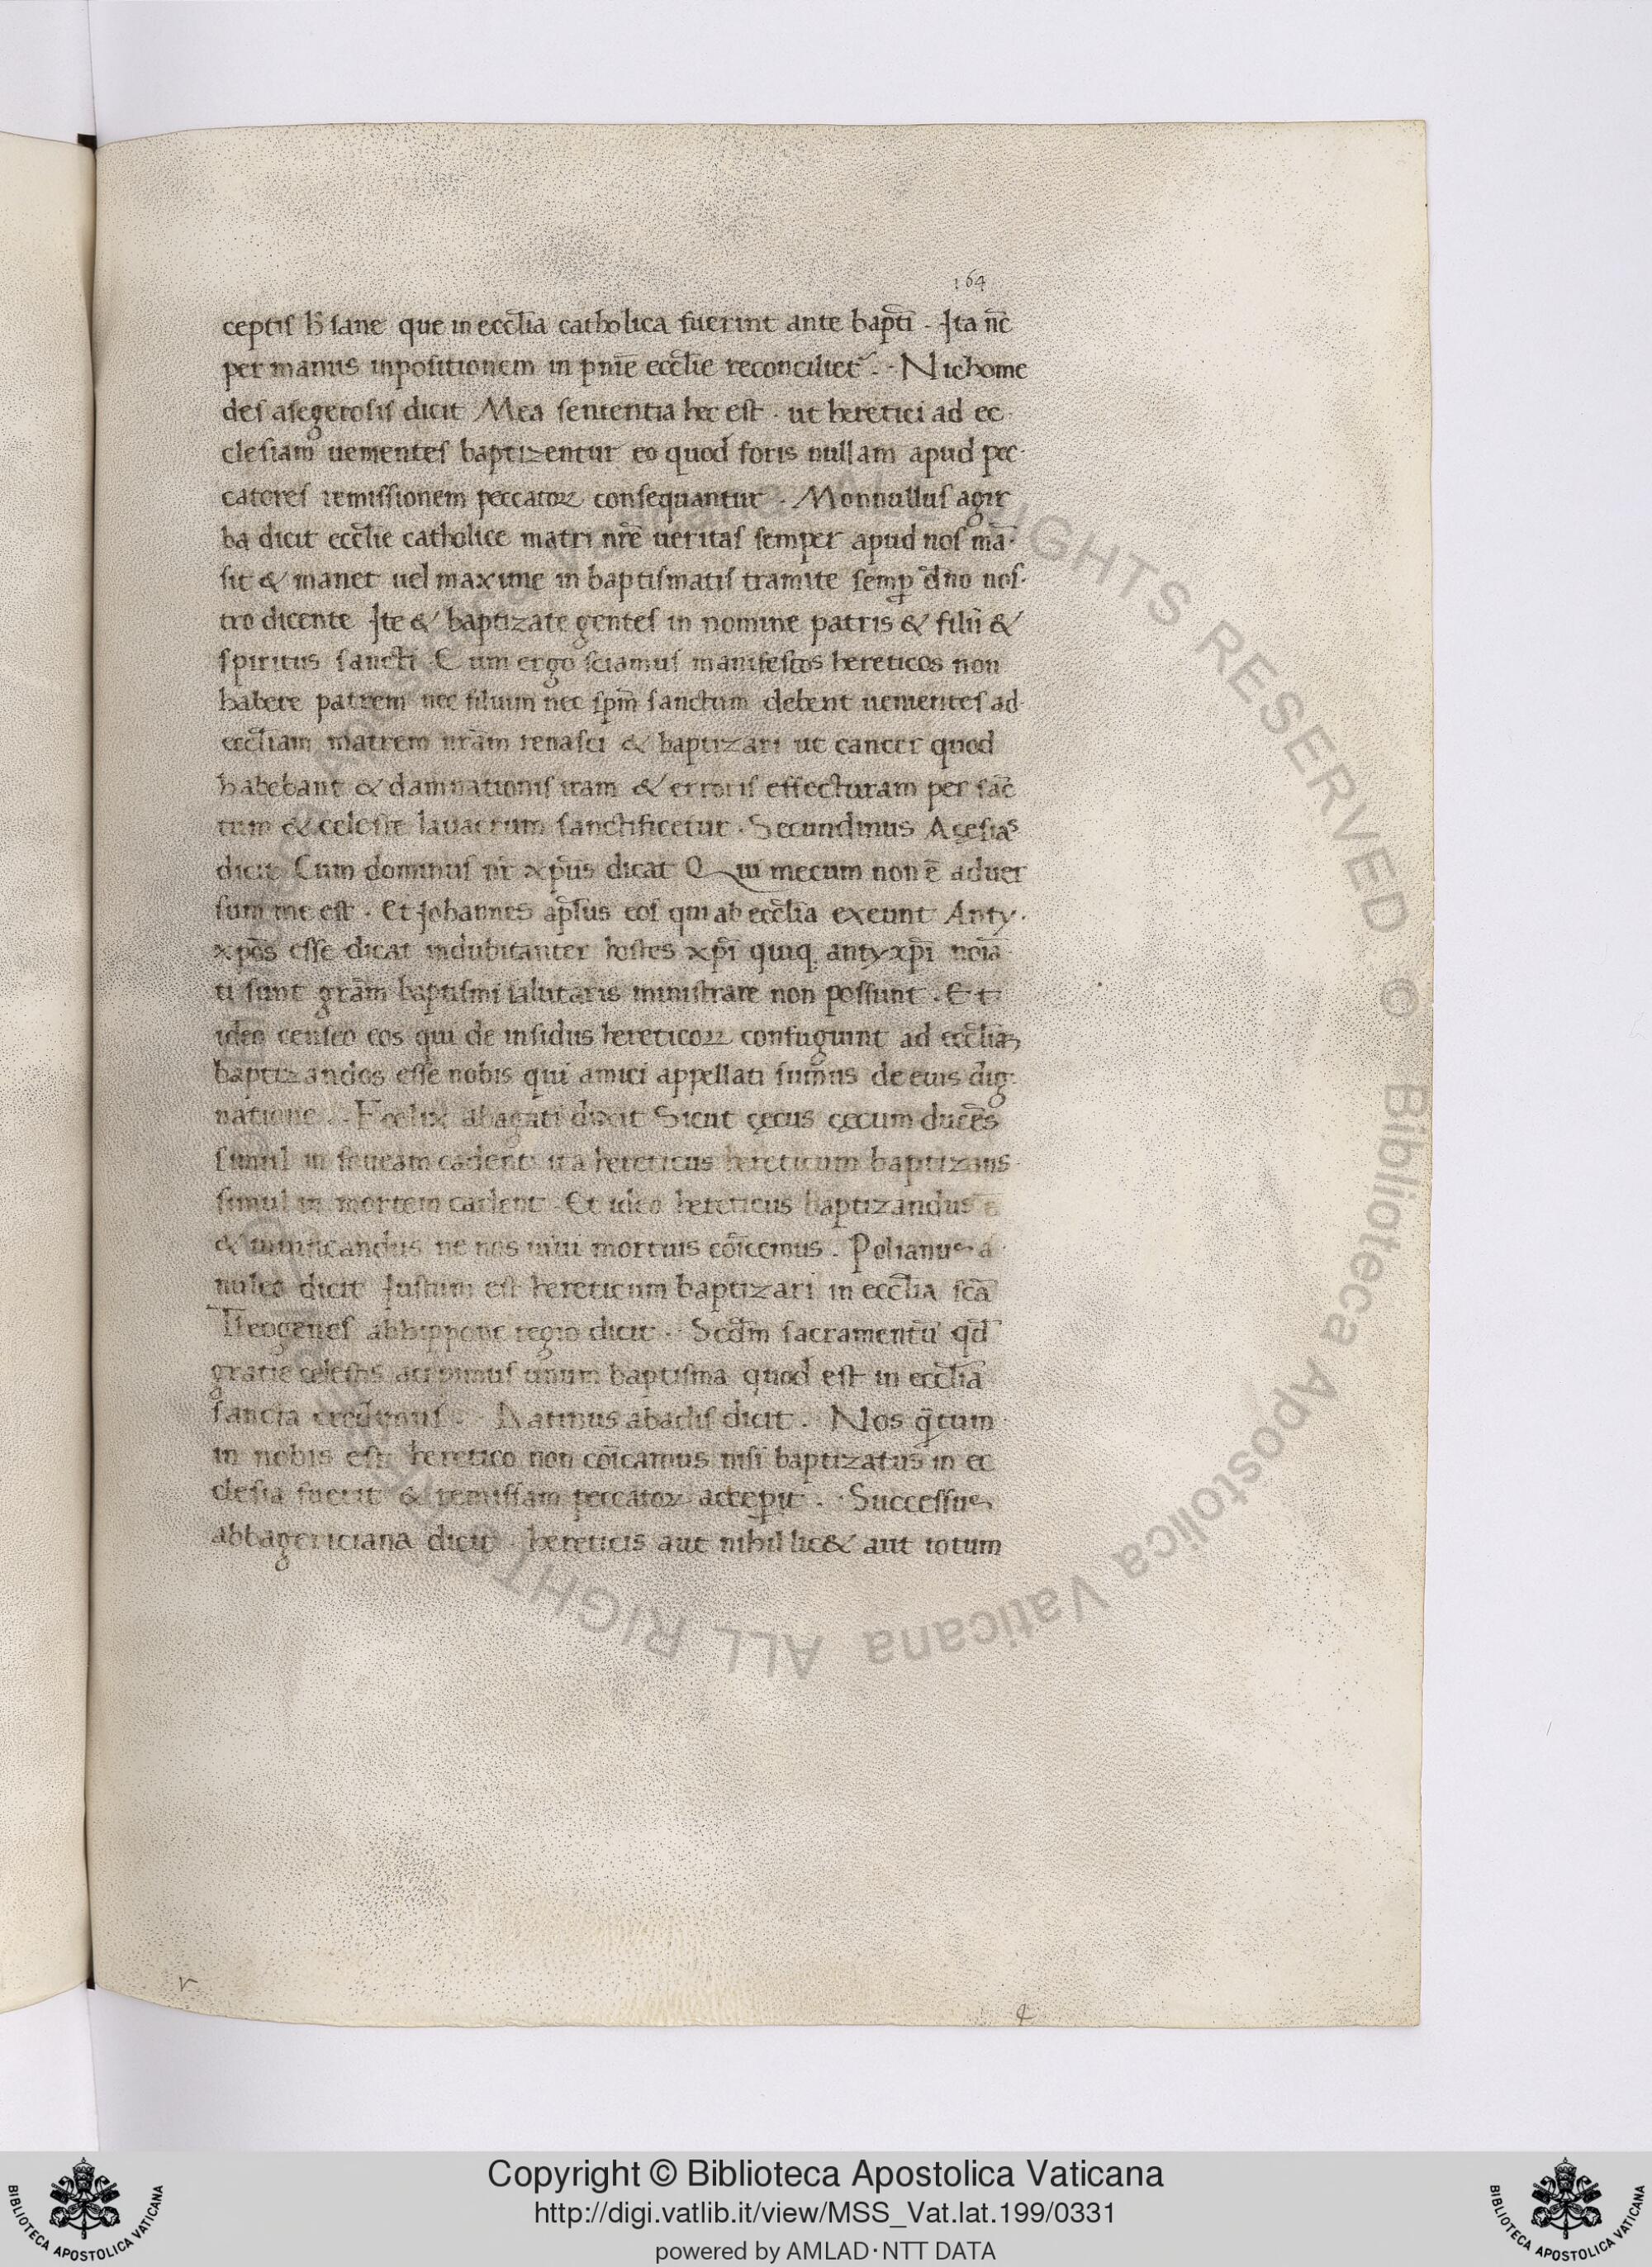 164
ceptis h̄ sane que in eccl̄ia catholica fuerint ante bapti̅ . Ita nc̄
per manus inpositionem in pnīe eccl̄ie reconciliet᷑ . Nichome
des asegerosis dicit Mea sententia hec est . ut heretici ad ec
clesiam uenientes baptizentur eo quod foris nullam apud pec
catores remissionem peccatoꝝ consequantur . Monnullus agir
ba dicit eccl̄ie catholice matri nr̄e ueritas semper apud nos mā
sit & manet uel maxime in baptismatis tramite semꝑ dn̄o nos
tro dicente Ite & baptizate gentes in nomine patris & filii &
spiritus sancti Cum ergo sciamus manifestos hereticos non
habere patrem nec filium nec spm̄ sanctum debent uenientes ad
eccl̄iam matrem nr̄am renasci & baptizari ut cancer quod
habebant & damnationis iram & erroris effecturam per sāc
tum & celeste lauacrum sanctificetur . Secundinus Acesias
dicit Cum dominus nr̄ xp̄us dicat Qui mecum non ē aduer
sum me est . Et Johannes apl̄us eos qui ab eccl̄ia exeunt Anty
xp̄os esse dicat indubitanter hostes xp̄i quiq. antyxp̄i noīa
ti sunt grām baptismi salutaris ministrare non possunt . Et
ideo censeo eos qui de insidiis hereticoꝝ confugiunt ad eccl̄iā
baptizandos esse nobis qui amici appellati sumus de eius dig
natione . Foelix abagati dixit Sicut çecus çecum ducēs
simul in foueam cadent ita hereticus hereticum baptizans
simul in mortem cadent Et ideo hereticus baptizandus ē
& uiuificandus ne nos uiui mortuis cōicemus . Polianus a
nuleo dicit Justum est hereticum baptizari in eccl̄ia sc̄a
Theogenes abhippone regio dicit . Scdm̄ sacramentū qd̄
gratie celestis accipimus unum baptisma quod est in eccl̄ia
sancta credimus . Datiuus abadis dicit . Nos q̄tum
in nobis est heretico non cōicamus nisi baptizatus in ec
clesia fuerit & remissam peccatoꝝ acceꝑit . Successus
abbagericiana dicit . hereticis aut nihil lic& aut totum
r
Copyright © Biblioteca Apostolica Vaticana
http://digi.vatlib.it/view/MSS_Vat.lat.199/0331
powered by AMLAD·NTT DATA
BIBLIOTECA APOSTOLICA VATICANA
BIBLIOTECA APOSTOLICA VATICANA
© Biblioteca Apostolica Vaticana ALL RIGHTS RESERVED